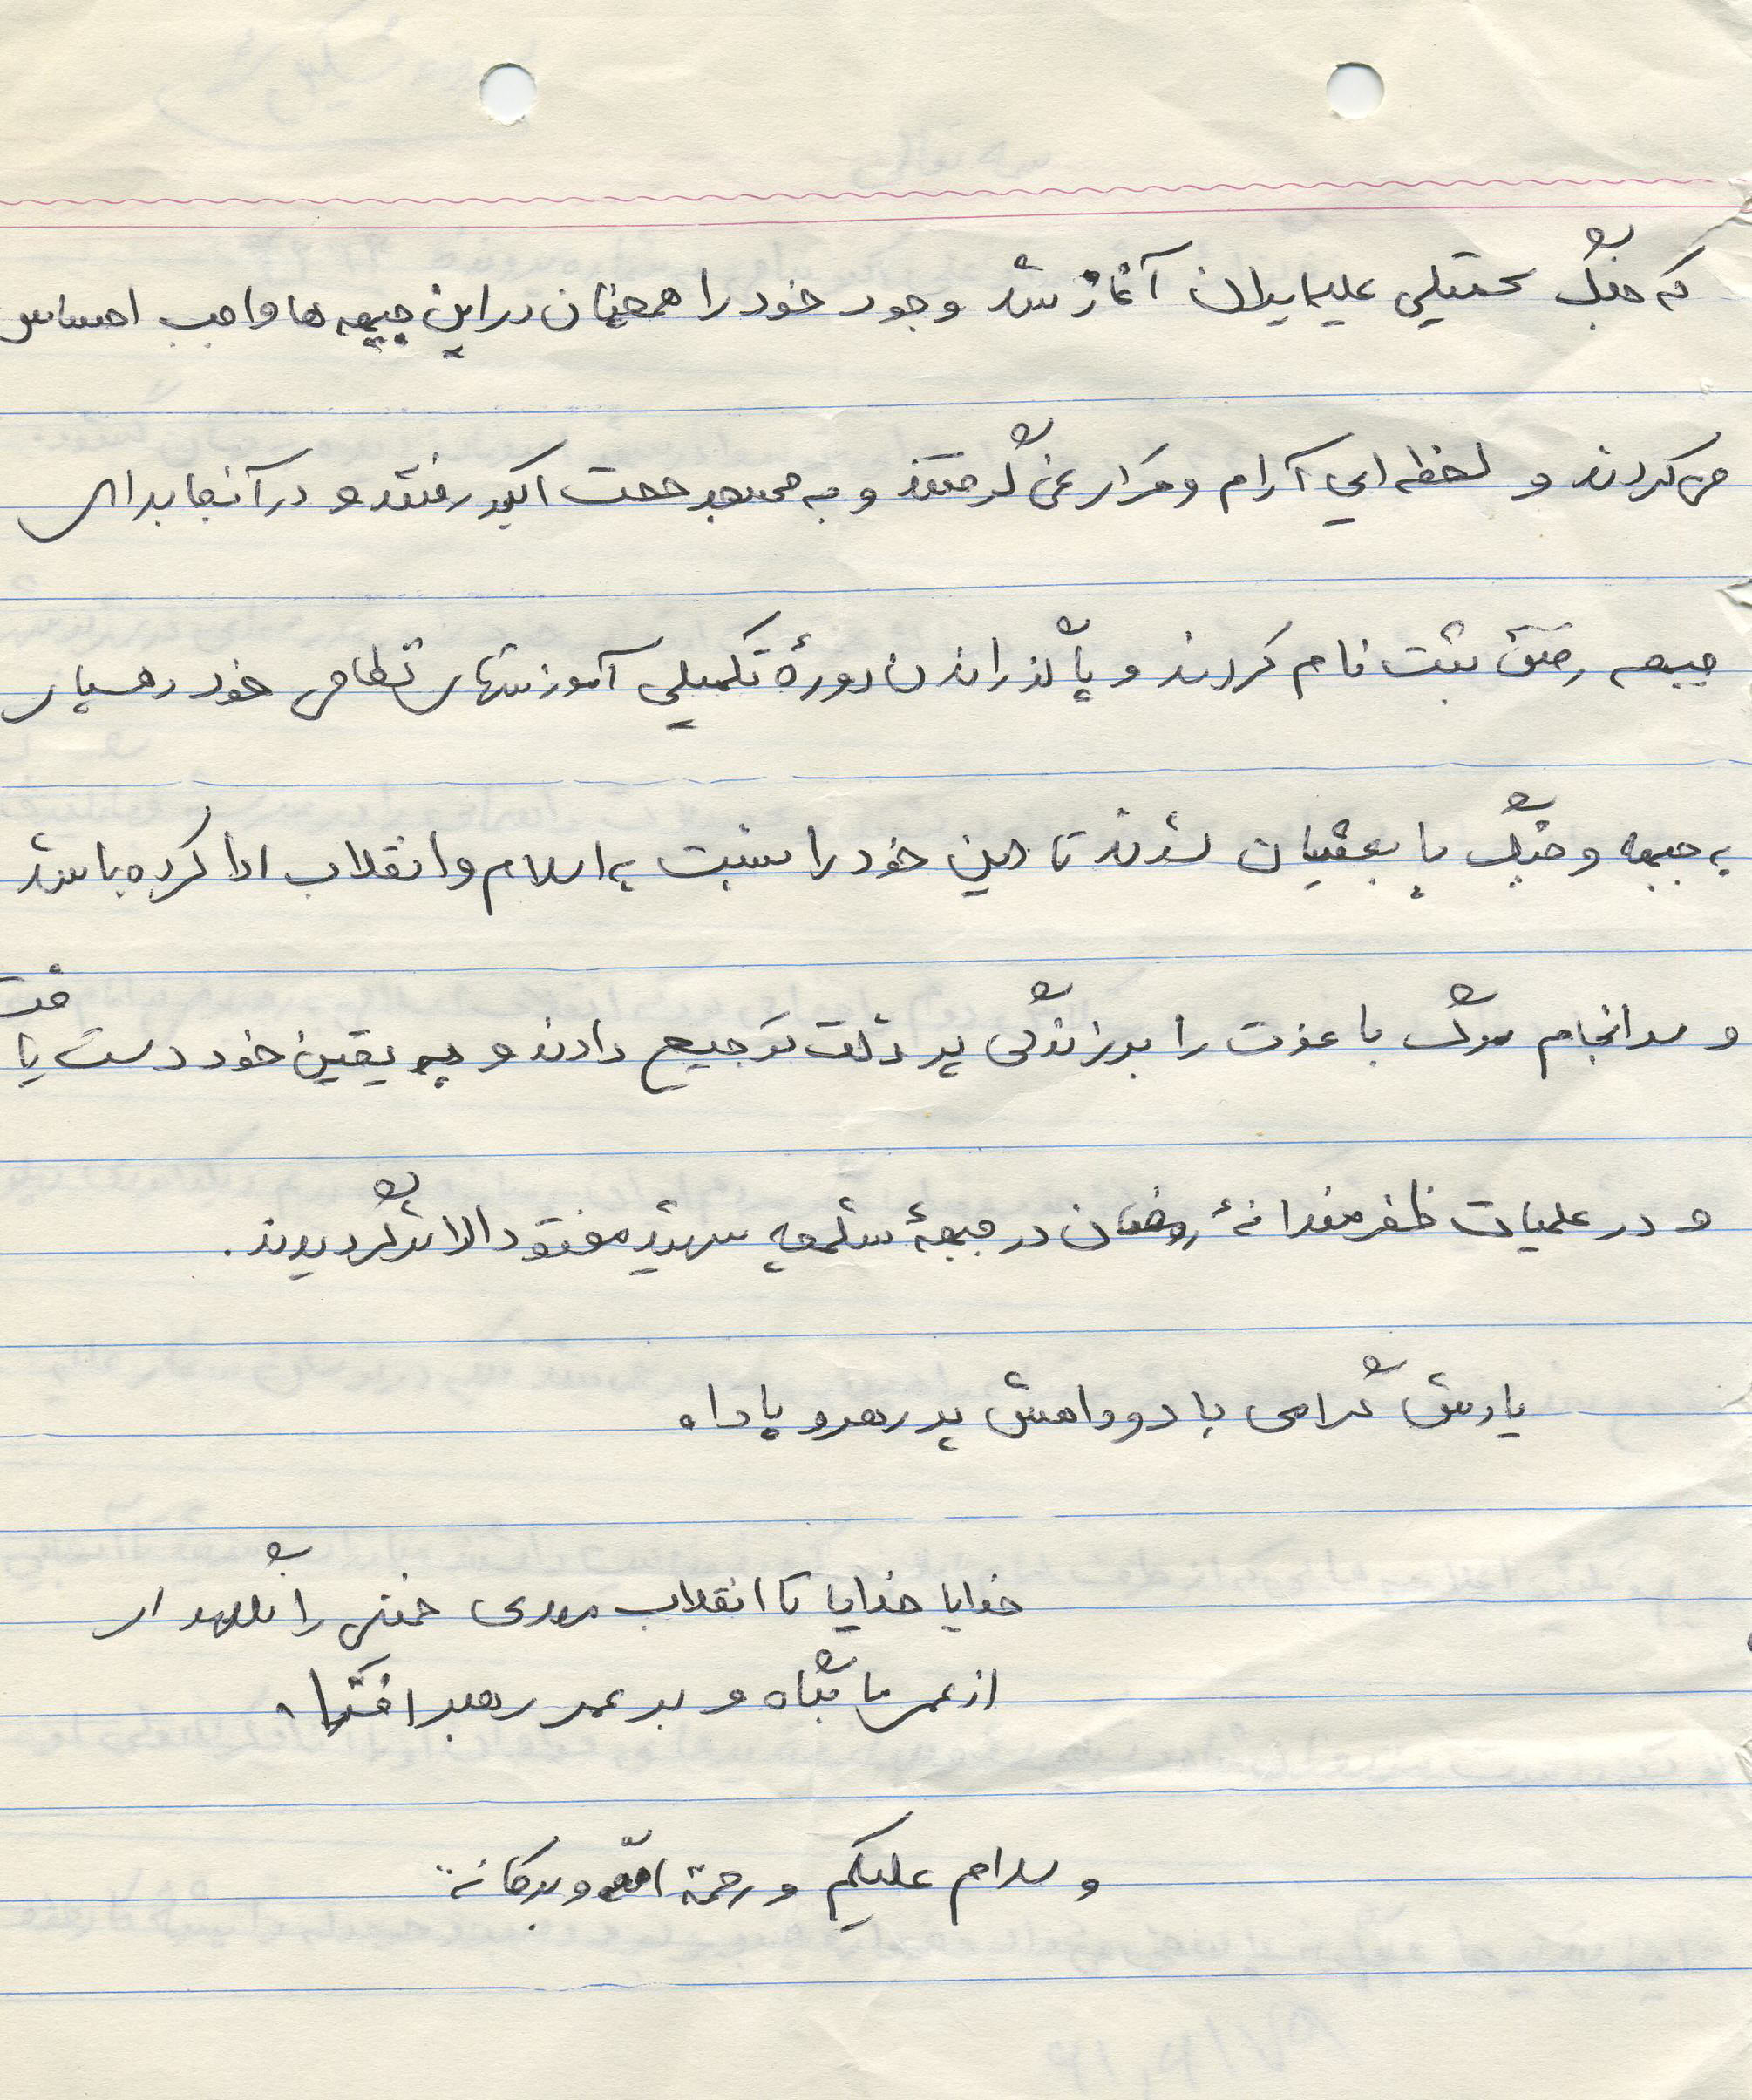 که جنگ تحمیلی علیه ایران آغاز شد وجود خود را همچنان در این جبهه ها واجب احساس
می کردند و لحظه ای آرام و قرار نمی گرفتند و به مسجد حجت اکبر رفتند و در آنجا برای
جبهه رفتن ثبت نام کردند و با گذراندن دورهٔ تکمیلی آموزشهای نظامی خود رهسپار
به جبهه و جنگ با بعثیان شدند تا دین خود را نسبت به اسلام و انقلاب ادا کرده باشد
و سرانجام مرگ با عزت را بر زندگی پر ذلت ترجیح دادند و به یقین خود دست یافت
و در عملیات ظفرمندانهٔ رمضان در جبههٔ شلمچه شهید مفقودالاثر گردیدند.
یادش گرامی باد و راهش پر رهرو باد
خدایا خدایا تا انقلاب مهدی خمینی را نگهدار
از عمر ما بکاه و بر عمر رهبر افزا
و سلام علیکم و رحمة الله و برکاته